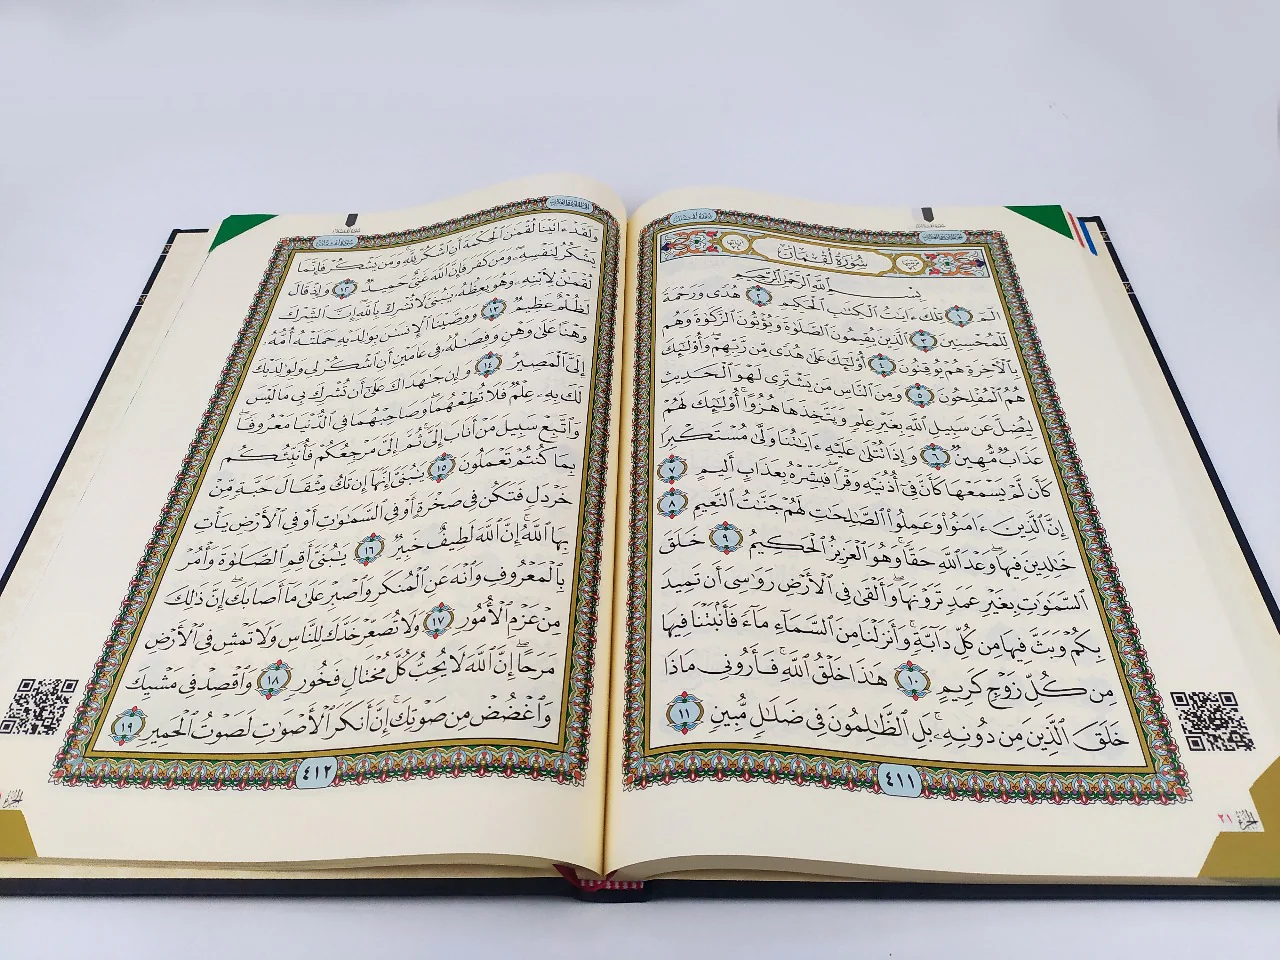 سُورَةُ لُقْمَانَ
بِسْمِ ٱللَّهِ ٱلرَّحْمَٰنِ ٱلرَّحِيمِ
الٓمٓ ١ تِلْكَ ءَايَٰتُ ٱلْكِتَٰبِ ٱلْحَكِيمِ ٢ هُدًى وَرَحْمَةً
لِّلْمُحْسِنِينَ ٣ ٱلَّذِينَ يُقِيمُونَ ٱلصَّلَوٰةَ وَيُؤْتُونَ ٱلزَّكَوٰةَ وَهُم
بِٱلْءَاخِرَةِ هُمْ يُوقِنُونَ ٤ أُوْلَٰٓئِكَ عَلَىٰ هُدًى مِّن رَّبِّهِمْۖ وَأُوْلَٰٓئِكَ
هُمُ ٱلْمُفْلِحُونَ ٥ وَمِنَ ٱلنَّاسِ مَن يَشْتَرِى لَهْوَ ٱلْحَدِيثِ
لِيُضِلَّ عَن سَبِيلِ ٱللَّهِ بِغَيْرِ عِلْمٍ وَيَتَّخِذَهَا هُزُوًاۚ أُوْلَٰٓئِكَ لَهُمْ
عَذَابٌ مُّهِينٌ ٦ وَإِذَا تُتْلَىٰ عَلَيْهِ ءَايَٰتُنَا وَلَّىٰ مُسْتَكْبِرًا
كَأَن لَّمْ يَسْمَعْهَا كَأَنَّ فِىٓ أُذُنَيْهِ وَقْرًاۖ فَبَشِّرْهُ بِعَذَابٍ أَلِيمٍ ٧
إِنَّ ٱلَّذِينَ ءَامَنُواْ وَعَمِلُواْ ٱلصَّٰلِحَٰتِ لَهُمْ جَنَّٰتُ ٱلنَّعِيمِ ٨
خَٰلِدِينَ فِيهَاۖ وَعْدَ ٱللَّهِ حَقًّاۚ وَهُوَ ٱلْعَزِيزُ ٱلْحَكِيمُ ٩ خَلَقَ
ٱلسَّمَٰوَٰتِ بِغَيْرِ عَمَدٍ تَرَوْنَهَاۖ وَأَلْقَىٰ فِى ٱلْأَرْضِ رَوَٰسِىَ أَن تَمِيدَ
بِكُمْ وَبَثَّ فِيهَا مِن كُلِّ دَآبَّةٍۚ وَأَنزَلْنَا مِنَ ٱلسَّمَآءِ مَآءً فَأَنۢبَتْنَا فِيهَا
مِن كُلِّ زَوْجٍ كَرِيمٍ ١٠ هَٰذَا خَلْقُ ٱللَّهِ فَأَرُونِى مَاذَا
خَلَقَ ٱلَّذِينَ مِن دُونِهِۦۚ بَلِ ٱلظَّٰلِمُونَ فِى ضَلَٰلٍ مُّبِينٍ ١١
٤١١
الجزء ٢١
وَلَقَدْ ءَاتَيْنَا لُقْمَٰنَ ٱلْحِكْمَةَ أَنِ ٱشْكُرْ لِلَّهِۚ وَمَن يَشْكُرْ فَإِنَّمَا
يَشْكُرُ لِنَفْسِهِۦۖ وَمَن كَفَرَ فَإِنَّ ٱللَّهَ غَنِىٌّ حَمِيدٌ ١٢ وَإِذْ قَالَ
لُقْمَٰنُ لِٱبْنِهِۦ وَهُوَ يَعِظُهُۥ يَٰبُنَىَّ لَا تُشْرِكْ بِٱللَّهِۖ إِنَّ ٱلشِّرْكَ
لَظُلْمٌ عَظِيمٌ ١٣ وَوَصَّيْنَا ٱلْإِنسَٰنَ بِوَٰلِدَيْهِ حَمَلَتْهُ أُمُّهُۥ
وَهْنًا عَلَىٰ وَهْنٍ وَفِصَٰلُهُۥ فِى عَامَيْنِ أَنِ ٱشْكُرْ لِى وَلِوَٰلِدَيْكَ
إِلَىَّ ٱلْمَصِيرُ ١٤ وَإِن جَٰهَدَاكَ عَلَىٰٓ أَن تُشْرِكَ بِى مَا لَيْسَ
لَكَ بِهِۦ عِلْمٌ فَلَا تُطِعْهُمَاۖ وَصَاحِبْهُمَا فِى ٱلدُّنْيَا مَعْرُوفًاۖ
وَٱتَّبِعْ سَبِيلَ مَنْ أَنَابَ إِلَىَّۚ ثُمَّ إِلَىَّ مَرْجِعُكُمْ فَأُنَبِّئُكُم
بِمَا كُنتُمْ تَعْمَلُونَ ١٥ يَٰبُنَىَّ إِنَّهَآ إِن تَكُ مِثْقَالَ حَبَّةٍ مِّنْ
خَرْدَلٍ فَتَكُن فِى صَخْرَةٍ أَوْ فِى ٱلسَّمَٰوَٰتِ أَوْ فِى ٱلْأَرْضِ يَأْتِ
بِهَا ٱللَّهُۚ إِنَّ ٱللَّهَ لَطِيفٌ خَبِيرٌ ١٦ يَٰبُنَىَّ أَقِمِ ٱلصَّلَوٰةَ وَأْمُرْ
بِٱلْمَعْرُوفِ وَٱنْهَ عَنِ ٱلْمُنكَرِ وَٱصْبِرْ عَلَىٰ مَآ أَصَابَكَۖ إِنَّ ذَٰلِكَ
مِنْ عَزْمِ ٱلْأُمُورِ ١٧ وَلَا تُصَعِّرْ خَدَّكَ لِلنَّاسِ وَلَا تَمْشِ فِى ٱلْأَرْضِ
مَرَحًاۖ إِنَّ ٱللَّهَ لَا يُحِبُّ كُلَّ مُخْتَالٍ فَخُورٍ ١٨ وَٱقْصِدْ فِى مَشْيِكَ
وَٱغْضُضْ مِن صَوْتِكَۚ إِنَّ أَنكَرَ ٱلْأَصْوَٰتِ لَصَوْتُ ٱلْحَمِيرِ ١٩
٤١٢
الجزء